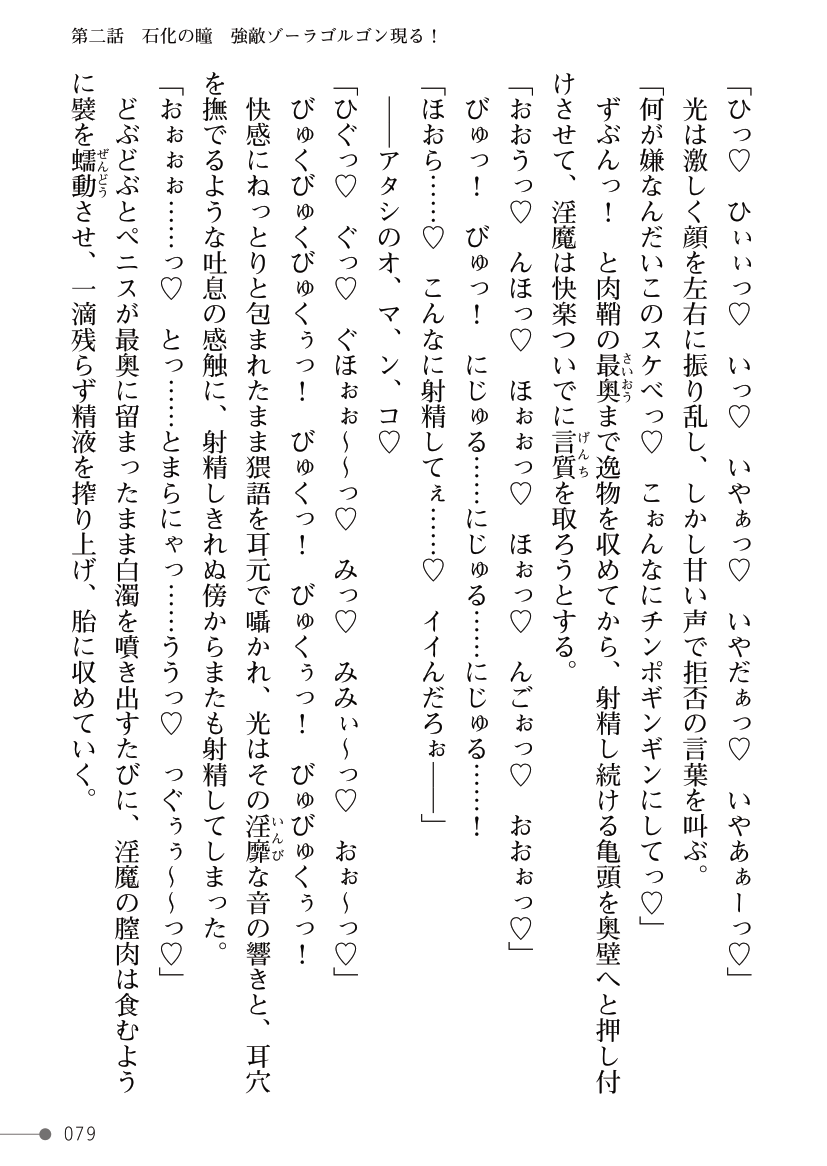 第二話　石化の瞳　強敵ゾーラゴルゴン現る！
「ひっ♡　ひぃぃっ♡　いっ♡　いやぁっ♡　いやだぁっ♡　いやあぁーっ♡」
　光は激しく顔を左右に振り乱し、しかし甘い声で拒否の言葉を叫ぶ。
「何が嫌なんだいこのスケベっ♡　こぉんなにチンポギンギンにしてっ♡」
　ずぶんっ！　と肉鞘の最奥さいおうまで逸物を収めてから、射精し続ける亀頭を奥壁へと押し付
けさせて、淫魔は快楽ついでに言質げんちを取ろうとする。
「おおうっ♡　んほっ♡　ほぉぉっ♡　ほぉっ♡　んごぉっ♡　おおぉっ♡」
　びゅっ！　びゅっ！　にじゅる……にじゅる……にじゅる……！
「ほおら……♡　こんなに射精してぇ……♡　イイんだろぉ――」
　――アタシのオ、マ、ン、コ♡
「ひぐっ♡　ぐっ♡　ぐほぉぉ～～っ♡　みっ♡　みみぃ～っ♡　おぉ～っ♡」
　びゅくびゅくびゅくぅっ！　びゅくっ！　びゅくぅっ！　びゅびゅくぅっ！
　快感にねっとりと包まれたまま猥語を耳元で囁かれ、光はその淫靡いんびな音の響きと、耳穴
を撫でるような吐息の感触に、射精しきれぬ傍からまたも射精してしまった。
「おぉぉぉ……っ♡　とっ……とまらにゃっ……ううっ♡　っぐぅぅ～～っ♡」
　どぶどぶとペニスが最奥に留まったまま白濁を噴き出すたびに、淫魔の膣肉は食むよう
に襞を蠕動ぜんどうさせ、一滴残らず精液を搾り上げ、胎に収めていく。
079